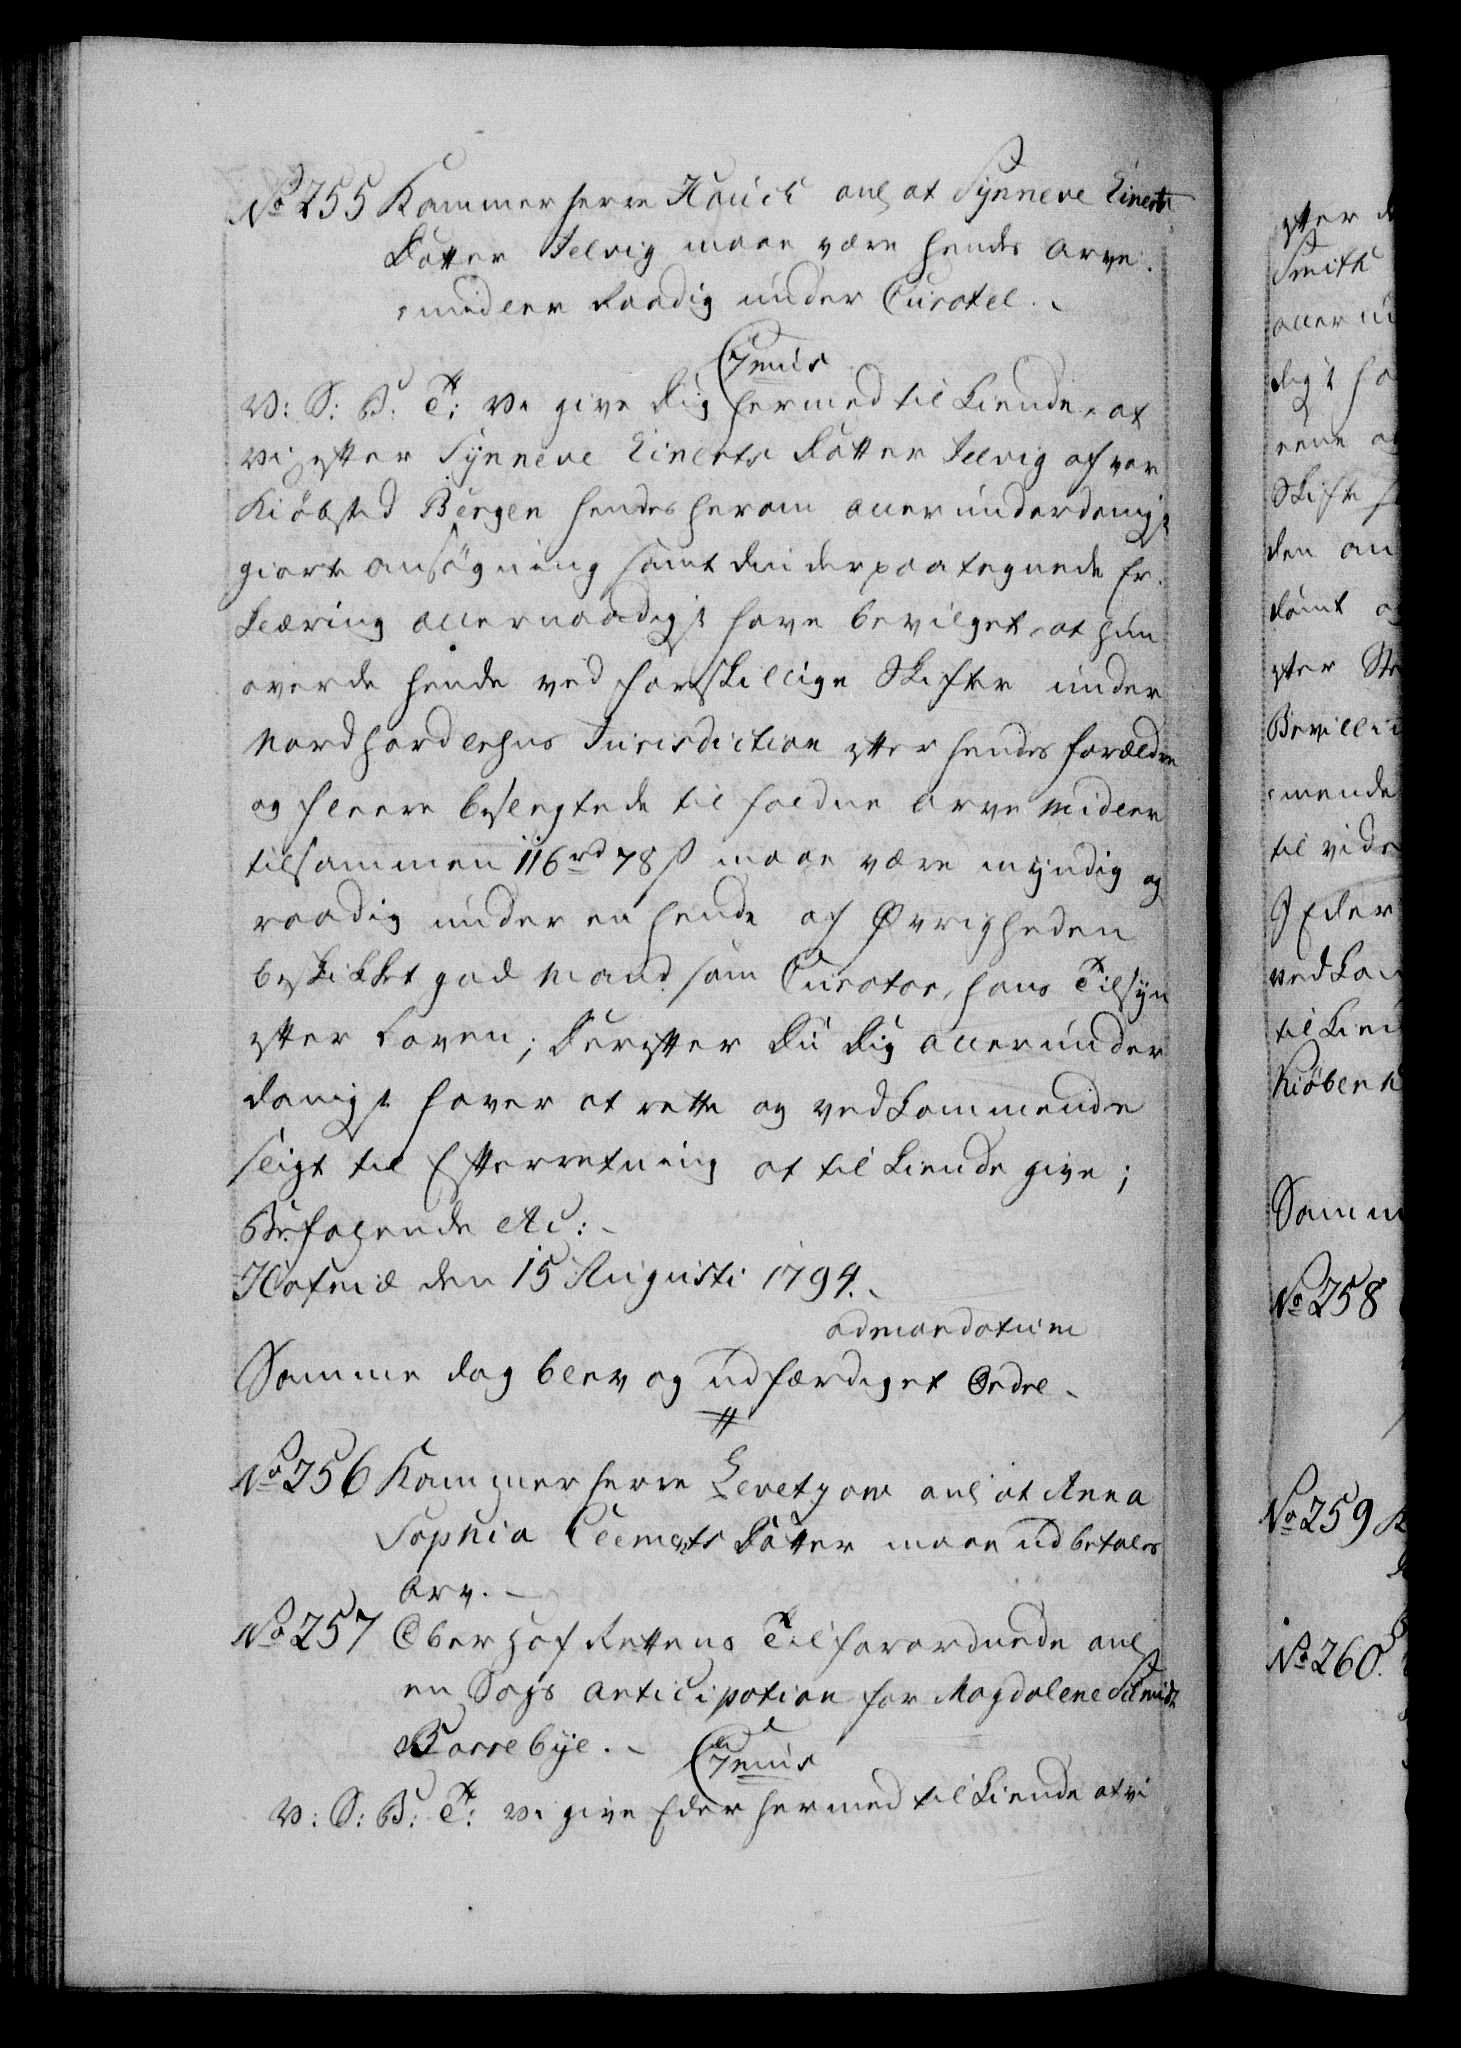 No 255 Kammerherre Hauch anl at Synneve Einerts
Datter Jelvig maae være hendes Arve-
midler Raadig under Curatel.
7mus
V: S: B: T: Vi give Dig hermed tilkiende, at
Vi efter Synneve Einerts Datter Jelvig af vor
Kiøbsted Bergen hendes herom allerunderdanigst
giorte Ansøgning samt Din derpaategnede Er-
klæring allernaadigst have bevilget, at hun
over de hende ved forskillige Skifter under
Nordhordlehns Jurisdiction efter hendes Forældre
og fleere beslegtede tilfaldne Arve Midler
tilsammen 116 rd 78 s maae være myndig og
raadig under en hende af Øvrigheden
beskikket god Mand som Curator, hans Tilsyn
efter Loven; Derefter Du Dig allerunder
danigst haver at rette og vedkommende
sligt til Efterretning at tilkiende give;
Befalende etc:
Hafniæ den 15 Augusti 1794.
ad mandatum
Samme dag blev og udfærdiget Ordre
No 256 Kammerherre Levetzow anl at Anna
Sophia Clemets Datter maae udbetales
Arv.
No 257 Ober Hof Rettens Tilforordnede anl
en Sags Anticipation for Magdalene Schmidt
Barrebye.
7mus
V: S: B: T: Vi give Eder hermed tilkiende at vi
efter
Smith
aller
digst
Skifte
den an
dømt
efter
Bevilli
mende
til vide
I Eder
vedkom
tilkien
Kiøbenh
Samm
No 258
No 259
No 260.